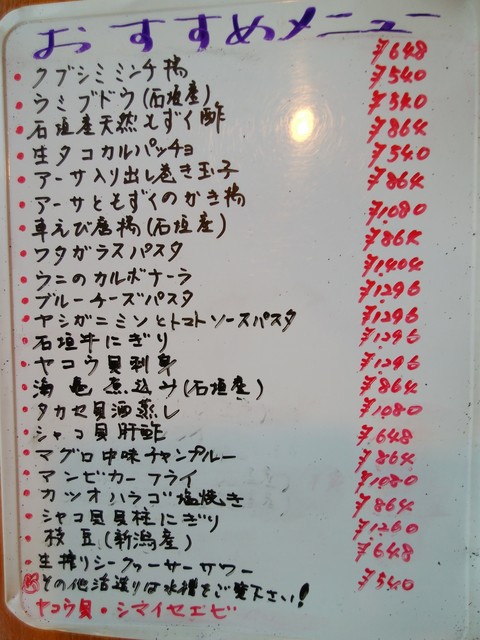 おすすめメニュー
・クブシミミンチ揚 ¥648
・ウミブドウ(石垣産) ¥540
・石垣産天然もずく酢 ¥540
・生タコカルパッチョ ¥864
・アーサ入り出し巻き玉子 ¥540
・アーサともずくのかき揚 ¥864
・車えび唐揚(石垣産) ¥1080
・フタガラスパスタ ¥864
・ウニのカルボナーラ ¥1404
・ブルーチーズパスタ ¥1296
・ヤシガニミソとトマトソースパスタ ¥1296
・石垣牛にぎり ¥1296
・ヤコウ貝刺身 ¥1296
・海亀煮込み(石垣産) ¥864
・タカセ貝酒蒸し ¥1080
・シャコ貝肝酢 ¥648
・マグロ中味チャンプルー ¥864
・マンビカーフライ ¥1080
・カツオハラゴ塩焼き ¥864
・シャコ貝貝柱にぎり ¥1260
・枝豆(新潟産) ¥648
・生搾りシークァーサーサワー ¥540
その他活造りは水槽をご覧下さい!
ヤコウ貝・シマイセエビ